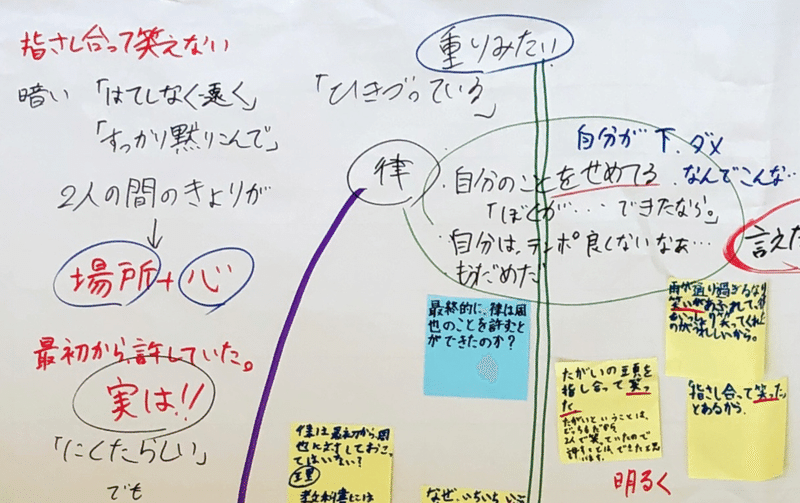 指さし合って笑えない
暗い「はてしなく遠く」
「すっかり黙りこんで」
2人の間のきょりが
場所+心
最初から許していた。
実は!!
「にくたらしい」
でも
重りみたい
「ひきづっている」
律
自分が下、ダメ
・自分のことをせめてる
なんでこんな…
「ぼくが…できたなら。」
自分は、テンポ良くないなぁ…
まだだめだ
言えた
最終的に、律は周
也のことを許すこと
ができたのか?
雨が通り過ぎるなり
笑いがあふれて、
がうれしいから。
たがいの頭を
指し合って笑っ
た
たがいということは、
2人で笑っていたので
指さし合って笑った
とあるから、
明るく
律は最初から周
也に
てはいない?
教科書には
なぜ、いちいち